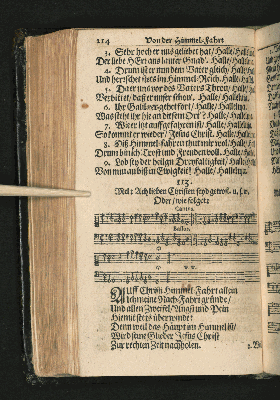 214 Von der Himmel-Fahrt
3. Sehr hoch er uns geliebet hat/ Halle/ Halle/
Der liebe HErr aus lauter Gnad'. Halle/ Halle
4. Drum ist er nun dem Vater gleich/ Halle/
Und herrschet stets im Himmel-Reich. Halle/ Hall
5. Da er uns vor des Vaters Thron/ Halle/
Vertritet/ daß er unser schone/ Halle/ Halleluja.
6. Ihr Galileer gehet fort/ Halle/ Halleluja.
Was steht ihr hie an diesem Ort'? Halle/ Halleluja.
7. Wie er hie auffgefahren ist/ Halle/ Halleluja.
So kommt er wieder/ Jesus Christ. Halle/
8. Diß Himmel-fahren thut mir wol/ Halle/
Drum bin ich Trost und Freuden voll. Halle/
9. Lob sey der heilgen Dreyfaltigkeit/ Halle/
Von nun an biß in Ewigkeit! Halle/ Halleluja.
113.
Mel: Ach lieben Christen seyd getrost. u. s. w.
Oder/ wie folget:
Cantus.
Bassus.
AUff Christi Himmel-Fahrt allein
Ich meine Nach-Fahrt gründe/
Und allen Zweifel/ Angst und Pein
Hiemit stets überwinde:
Denn weil das Häupt im Himmel ist/
Wird seine Glieder Jesus Christ
Zur rechten Zeit nachholen.